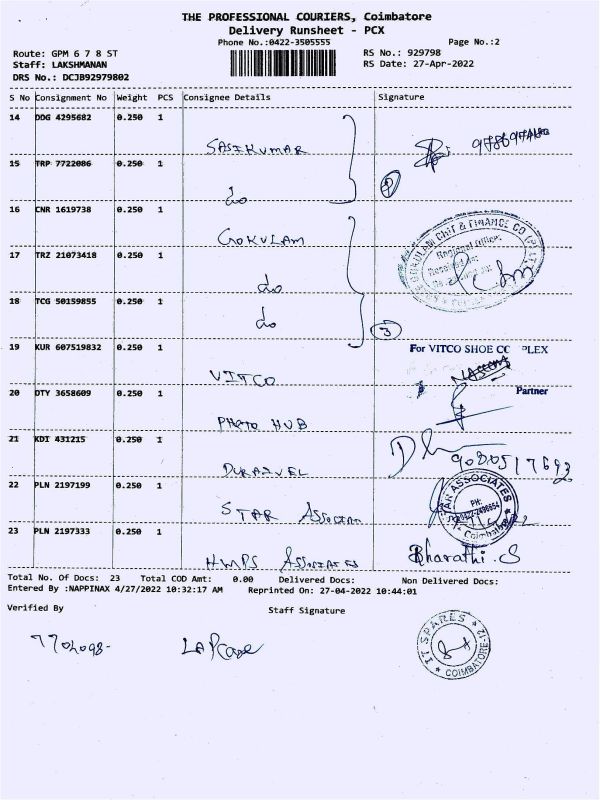 THE PROFESSIONAL COURIERS, Coimbatore
Delivery Runsheet - PCX
Phone No.:0422-3505555
Page No.:2
Route: GPM 6 7 8 ST
RS No.: 929798
Staff: LAKSHMANAN
RS Date: 27-Apr-2022
DRS No.: DCJB92979802
S No Consignment No Weight PCS Consignee Details Signature
14 DDG 4295682 0.250 1
SASIKUMAR
15 TRP 7722086 0.250 1
do
2
16 CNR 1619738 0.250 1
GOKULAM
17 TRZ 21073418 0.250 1
Regional Office
do
18 TCG 50159855 0.250 1
do
3
19 KUR 607519832 0.250 1
For VITCO SHOE CO PLEX
VITCO
20 DTY 3658609 0.250 1
Partner
PHOTO HUB
21 KDI 431215 0.250 1
DURAIVEL
22 PLN 2197199 0.250 1
ASSOCIATES
PH:
STAR
Coimbatore
23 PLN 2197333 0.250 1
Bharathi.S
HWPS ASSOCIATES
Total No. Of Docs: 23 Total COD Amt: 0.00 Delivered Docs: Non Delivered Docs:
Entered By :NAPPINAX 4/27/2022 10:32:17 AM Reprinted On: 27-04-2022 10:44:01
Verified By
Staff Signature
SPARES
COIMBATORE-12